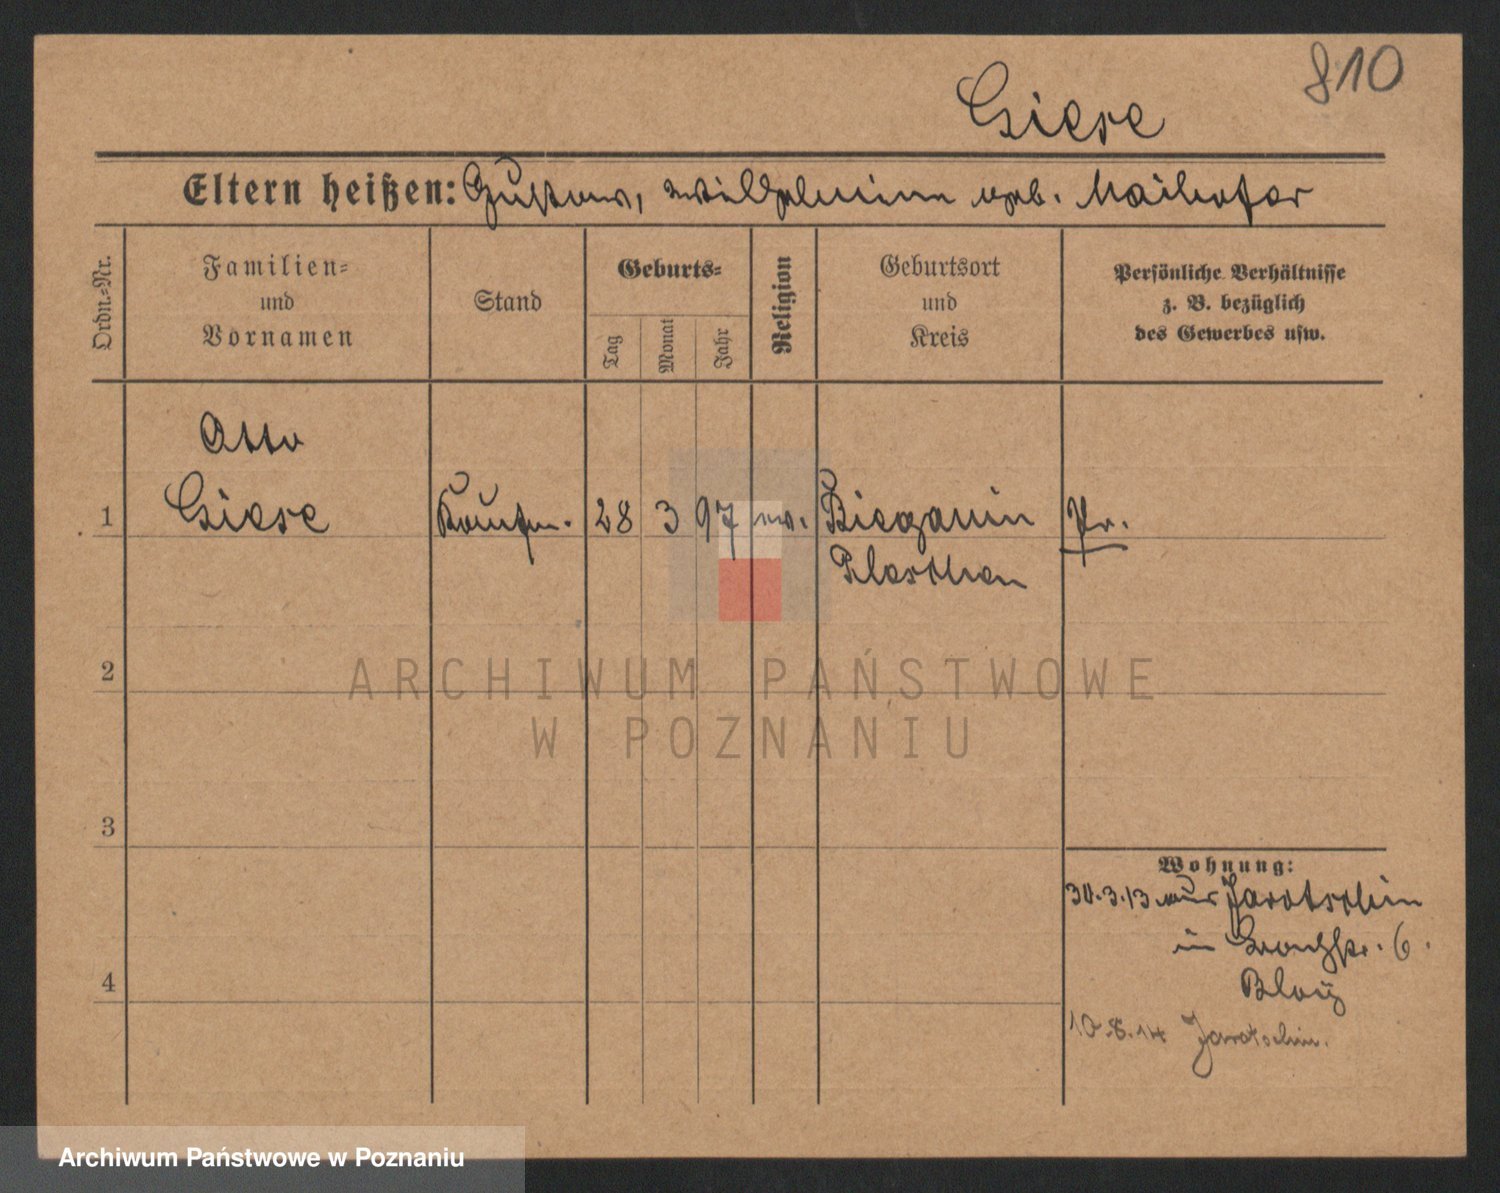 810
Giese
Eltern heißen: Gustav, Wilhelmine geb. Maihofer
Ordn.-Nr.
Familien-
und
Vornamen
Stand
Geburts-
Tag
Monat
Jahr
Religion
Geburtsort
und
Kreis
Persönliche Verhältnisse
z. B. bezüglich
des Gewerbes usw.
Otto
1 Giese Kaufm. 28 3 97 ev. Bieganin Pr.
Pleschen
2
3
4
Wohnung:
30.3.13 aus Jarotschin
in 6.
10.8.14 Jarotschin.
ARCHIWUM PAŃSTWOWE
W POZNANIU
Archiwum Państwowe w Poznaniu